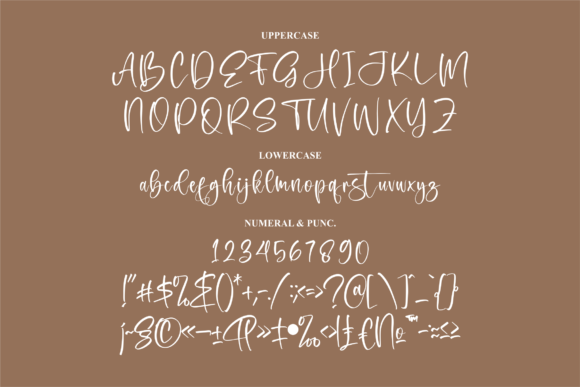 UPPERCASE
ABCDEFGHIJKLM
NOPQRSTUVWXYZ
LOWERCASE
abcdefghijklmnopqrstuvwxyz
NUMERAL & PUNC.
1234567890
!"#$%&()*+,-./:;<=>?@[\]^_`{}
¡~§©«¬±¶»‡•‰‹›ł€№™-÷≈≤≥